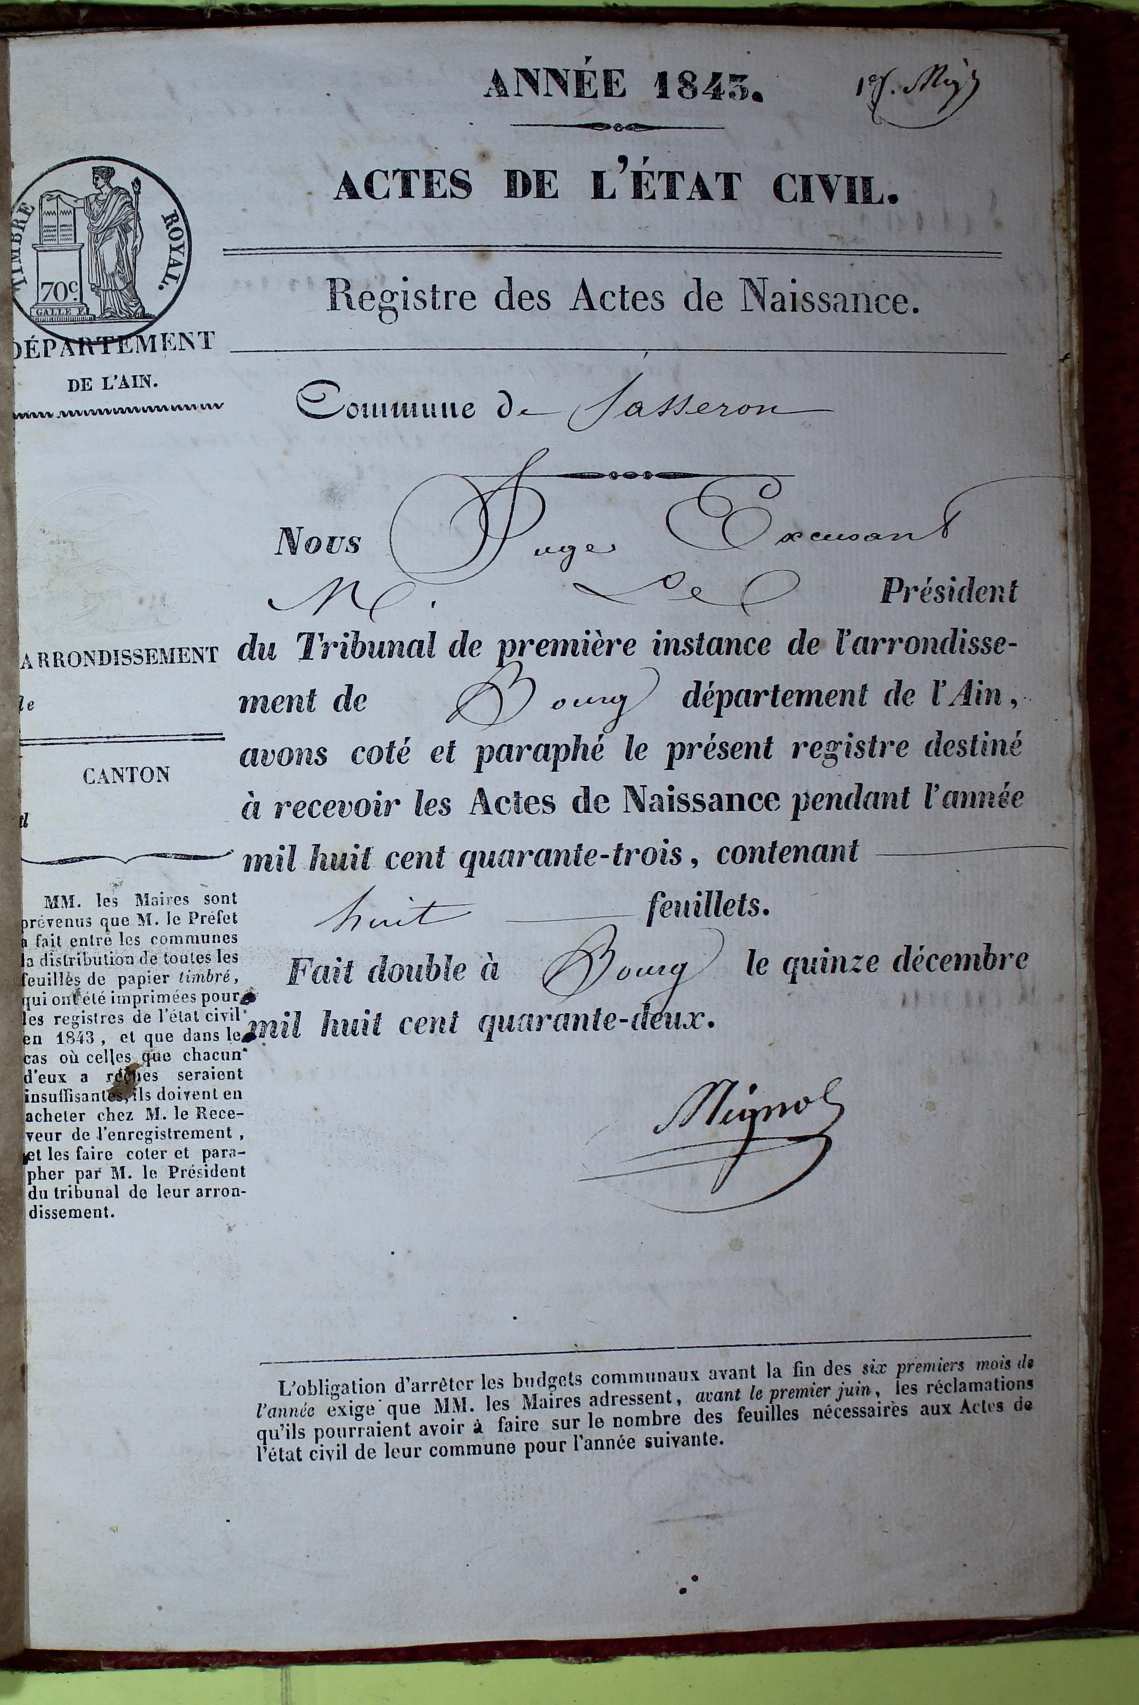 ANNÉE 1843.
ACTES DE L'ÉTAT CIVIL.
TIMBRE ROYAL.
70c
GALLE F.
Registre des Actes de Naissance.
DÉPARTEMENT
DE L'AIN.
Commune de Jasseron
Nous Juge Excusant
M. Le Président
du Tribunal de première instance de l'arrondisse-
ment de Bourg département de l'Ain,
avons coté et paraphé le présent registre destiné
à recevoir les Actes de Naissance pendant l'année
mil huit cent quarante-trois, contenant
huit feuillets.
Fait double à Bourg le quinze décembre
mil huit cent quarante-deux.
ARRONDISSEMENT
CANTON
MM. les Maires sont
prévenus que M. le Préfet
a fait entre les communes
la distribution de toutes les
feuilles de papier timbré,
qui ont été imprimées pour
les registres de l'état civil
en 1843, et que dans le
cas où celles que chacun
d'eux a reçues seraient
insuffisantes, ils doivent en
acheter chez M. le Rece-
veur de l'enregistrement,
et les faire coter et para-
pher par M. le Président
du tribunal de leur arron-
dissement.
L'obligation d'arrêter les budgets communaux avant la fin des six premiers mois de
l'année exige que MM. les Maires adressent, avant le premier juin, les réclamations
qu'ils pourraient avoir à faire sur le nombre des feuilles nécessaires aux Actes de
l'état civil de leur commune pour l'année suivante.